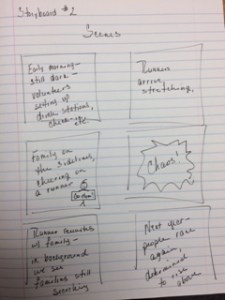 Storyboard #2
Scenes
Early morning—
still dark—
volunteers
setting up
drink stations,
check-in, etc.
Runners
arrive,
stretching,
Family on
the sidelines,
cheering on
a runner
Chaos!
Runner reunites
w/ family—
in background
we see
families still
searching
Next year—
people race
again,
determined
to rise
above